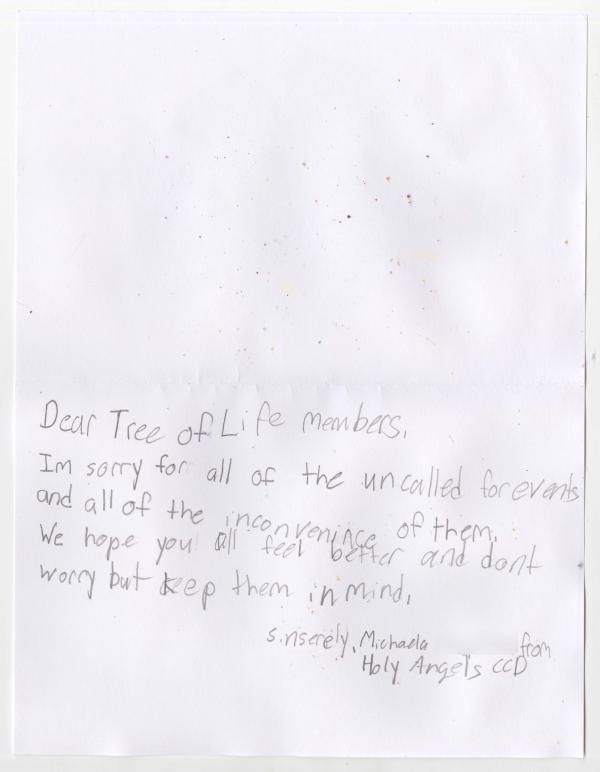 Dear Tree of Life members,
Im sorry for all of the uncalled for events
and all of the inconvenince of them.
We hope you all feel better and dont
worry but keep them in mind,
sinserely, Michaela from
Holy Angels CCD